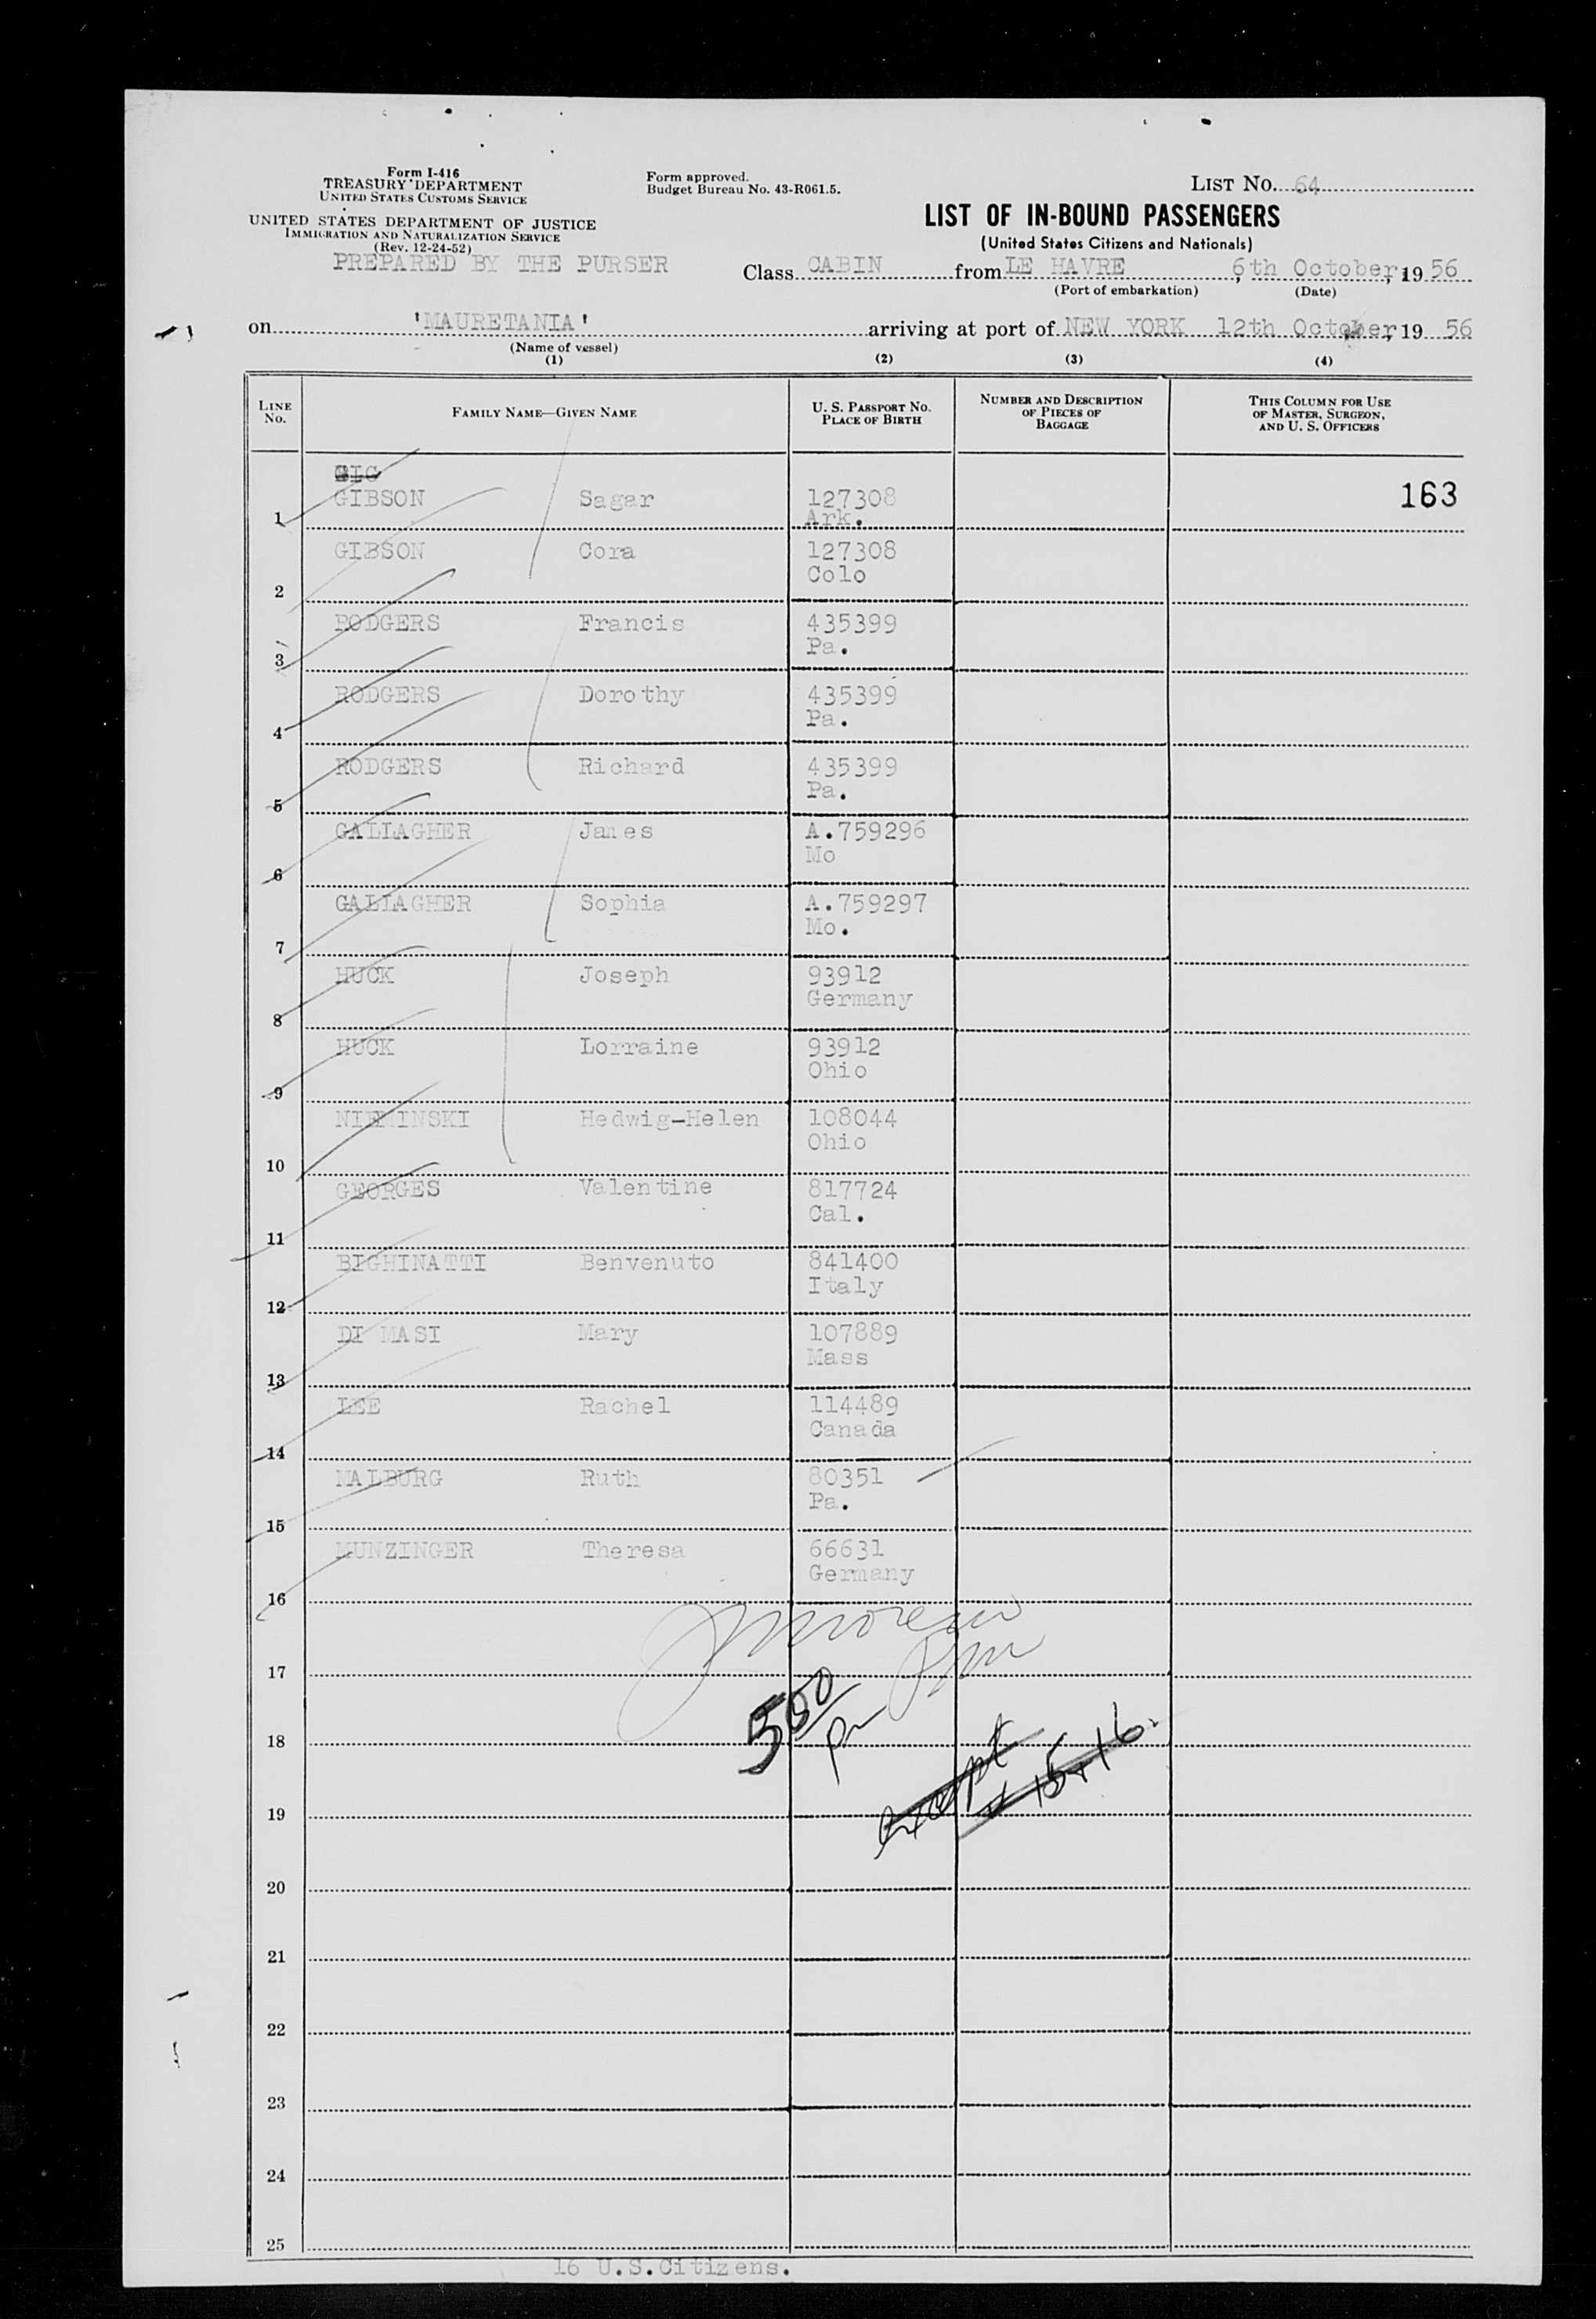 Form I-416
TREASURY DEPARTMENT
UNITED STATES CUSTOMS SERVICE
UNITED STATES DEPARTMENT OF JUSTICE
IMMIGRATION AND NATURALIZATION SERVICE
(Rev. 12-24-52)
PREPARED BY THE PURSER
Form approved.
Budget Bureau No. 43-R061.5.
LIST NO. 64
LIST OF IN-BOUND PASSENGERS
(United States Citizens and Nationals)
Class CABIN from LE HAVRE, 6th October, 19 56
(Port of embarkation) (Date)
on 'MAURETANIA' arriving at port of NEW YORK 12th October, 19 56
(Name of vessel)
(1) (2) (3) (4)
LINE NO.
FAMILY NAME—GIVEN NAME
U. S. PASSPORT NO.
PLACE OF BIRTH
NUMBER AND DESCRIPTION
OF PIECES OF
BAGGAGE
THIS COLUMN FOR USE
OF MASTER, SURGEON,
AND U. S. OFFICERS
163
1 GIBSON Sagar 127308
Ark.
2 GIBSON Cora 127308
Colo
3 RODGERS Francis 435399
Pa.
4 RODGERS Dorothy 435399
Pa.
5 RODGERS Richard 435399
Pa.
6 GALLAGHER James A.759296
Mo
7 GALLAGHER Sophia A.759297
Mo.
8 HUCK Joseph 93912
Germany
9 HUCK Lorraine 93912
Ohio
10 NIEMINSKI Hedwig-Helen 108044
Ohio
11 GEORGES Valentine 817724
Cal.
12 BIGHINATTI Benvenuto 841400
Italy
13 DI MASI Mary 107889
Mass
14 LEE Rachel 114489
Canada
15 MALBURG Ruth 80351
Pa.
16 MUNZINGER Theresa 66631
Germany
17
18
500
except
15+16.
19
20
21
22
23
24
25
16 U.S.Citizens.